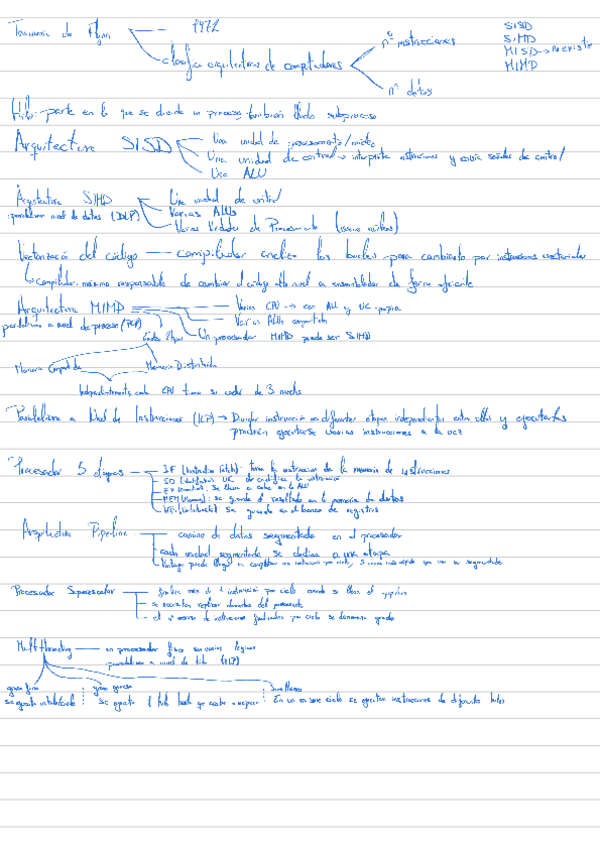 Taxonomía de Flynn — 1972
clasifica arquitecturas de computadores
nº instrucciones
nº datos
SISD
SIMD
MISD → no existe
MIMD
Hilo: parte en lo que se divide un proceso también llamado subproceso
Arquitectura SISD
Una unidad de procesamiento/núcleo
Una unidad de control → interpreta instrucciones y envía señales de control
Una ALU
Arquitectura SIMD
paralelismo a nivel de datos (DLP)
Una unidad de control
Varias ALUs
Varias Unidades de Procesamiento (varios núcleos)
Vectorización del código — compilador analiza los bucles para cambiarlo por instrucciones vectoriales
compilador: máximo responsable de cambiar el código alto nivel a ensamblador de forma eficiente
Arquitectura MIMD
paralelismo a nivel de proceso
Varias CPU → con ALU y UC propia
Varias ALUs
Un procesador MIMD puede ser SIMD
Memoria Compartida
Memoria Distribuida
Independientemente cada CPU tiene su caché de 3 niveles
Paralelismo a Nivel de Instrucciones (ILP) → Dividir instrucción en diferentes etapas independientes entre ellas y ejecutarlas
podrán ejecutarse varias instrucciones a la vez
Procesador 5 etapas
IF (Instruction Fetch): toma la instrucción de la memoria de instrucciones
UC decodifica la instrucción
Se lleva a cabo en la ALU
MEM (Memory): se guarda el resultado en la memoria de datos
Se guarda en el banco de registros
Arquitectura Pipeline
camino de datos segmentado en el procesador
cada unidad segmentada se dedica a una etapa
Procesador Superescalar
finaliza más de 1 instrucción por ciclo cuando se llena el pipeline
se necesitan replicar elementos del procesador
el nº máximo de instrucciones finalizadas por ciclo se denomina grado
Multithreading — un procesador físico son varios lógicos
paralelismo a nivel de hilo
grano fino
grano grueso
Simultáneo
En un mismo ciclo se ejecutan instrucciones de diferentes hilos